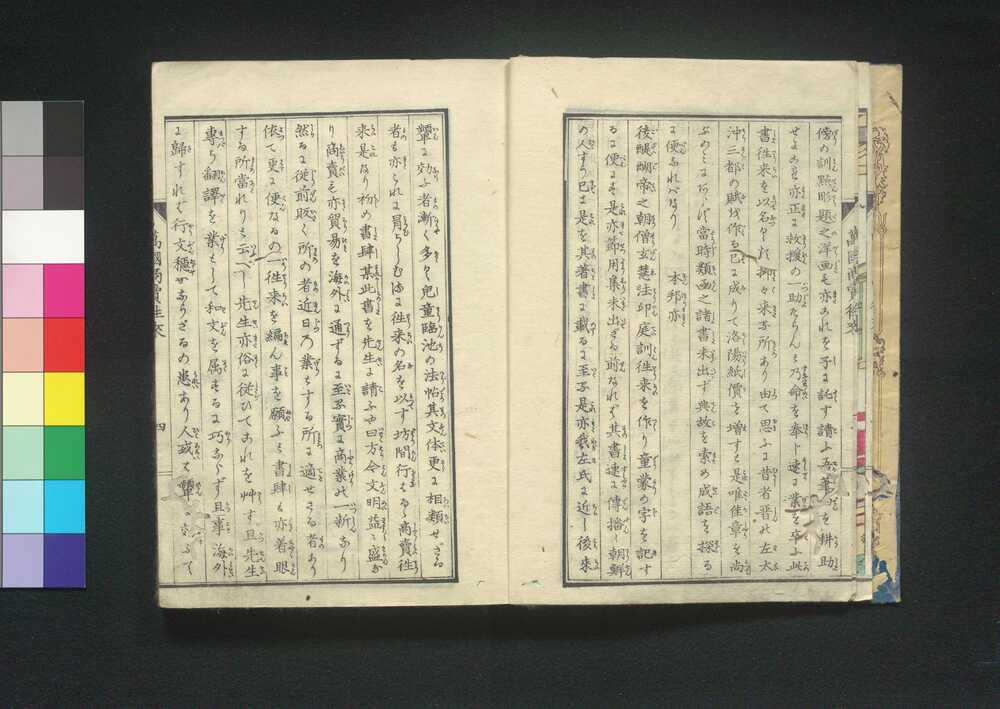 傍の訓點眇題之洋画も亦これを子に託す請ふ吾筆を耕助
せよこれ亦正に救援の一助たらんと乃命を奉し速に業を卒ふ此
書往来を以名く抑々来る所あり由て思ふに昔者晋の左太
沖三都の賦を作る已に成りて洛陽紙價を増すと是唯佳章を尚
ぶのミにあらず當時類画之諸書未出ず典故を索め成語を探る
に便なれバなり 本邦亦
後醍醐帝之朝僧玄慧法印庭訓往来を作り童蒙の字を記す
るに便にす是亦節用集未出ざる前なれバ其書速に傳播し朝鮮
の人すら已に是を其著書に載るに至る是亦我左氏に近し後来
顰に効ふ者漸く多く兒童臨池の法帖其文体更に相類せざる
者も亦これに冐らしむるに往来の名を以す坊間行はるゝ商賣往
来是なり 書肆某此書を先生に請ふ曰方今文明益〻盛な
り商賣も亦貿易を海外に通ずるに至る實に商業の一新なり
然るに従前取く所の者近日の業とする所に適せざる者あり
依て更に便なるの一往来を編ん事を願ふと書肆も亦着眼
する所當れりと云べし先生亦俗に従ひてこれを艸す且先生
専ら翻譯を業として和文を属するに巧ならず且事海外
に歸すれバ行文穏かならざるの患あり人或は顰に效ふて
萬國商賣往来
四